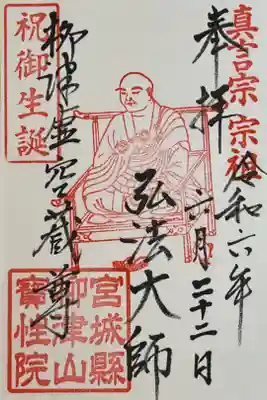 真言宗 宗祖
令和六年
奉拝
六月二十二日
弘法大師
柳津虚空蔵尊
祝御生誕
宮城縣
柳津山
寳性院